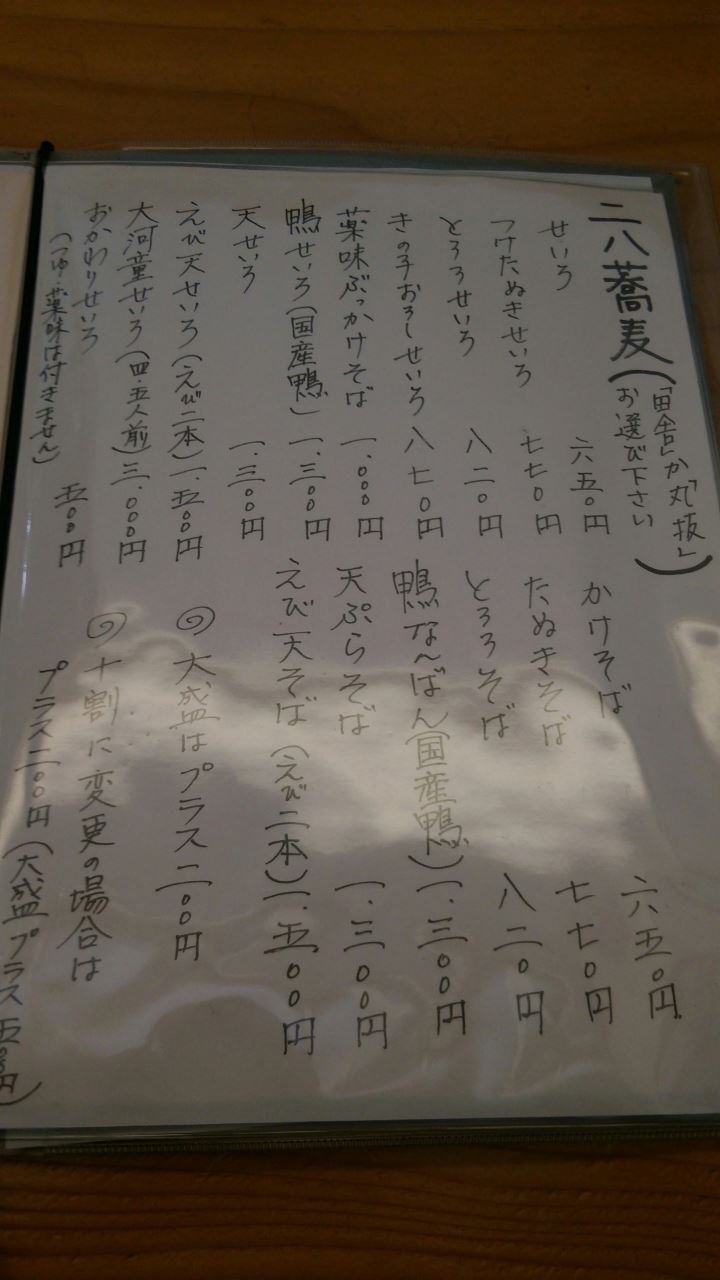 二八蕎麦(「田舎」か丸「抜」お選び下さい)
せいろ 六五〇円
つけたぬきせいろ 七七〇円
とろろせいろ 八二〇円
きの子おろしせいろ 八七〇円
薬味ぶっかけそば 一.〇〇〇円
鴨せいろ(国産鴨) 一.三〇〇円
天せいろ 一.三〇〇円
えび天せいろ(えび二本) 一.五〇〇円
大河童せいろ(四.五人前) 三.〇〇〇円
おかわりせいろ 五〇〇円
(つゆ・薬味は付きません)
かけそば 六五〇円
たぬきそば 七七〇円
とろろそば 八二〇円
鴨なんばん(国産鴨) 一.三〇〇円
天ぷらそば 一.三〇〇円
えび天そば(えび二本) 一.五〇〇円
大盛はプラス二〇〇円
十割に変更の場合は
プラス二〇〇円(大盛プラス五〇〇円)